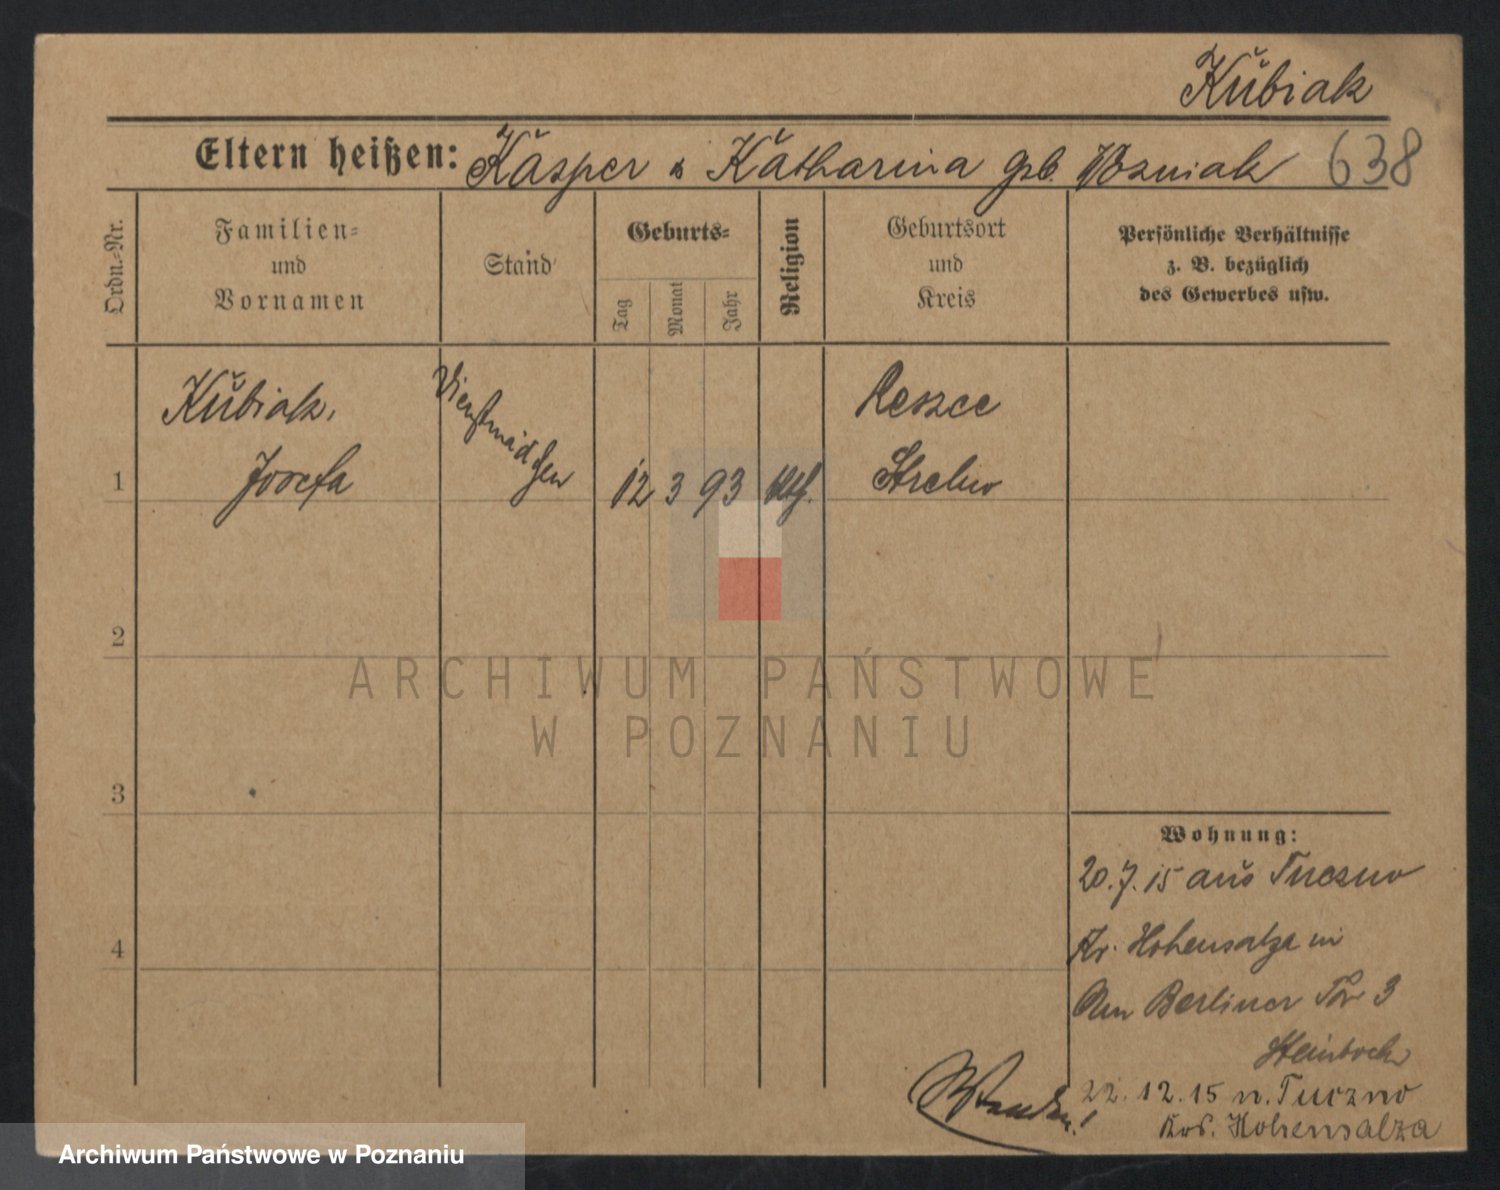 Kubiak
Eltern heißen: Kasper & Katharina geb. Wozniak 638
Ordn.-Nr.
Familien-
und
Vornamen
Stand
Geburts-
Tag
Monat
Jahr
Religion
Geburtsort
und
Kreis
Persönliche Verhältnisse
z. B. bezüglich
des Gewerbes usw.
Kubiak,
Josefa
Dienstmädchen
1
12 3 93 kth.
Reszce
Strelno
2
3
4
Wohnung:
20.7.15 aus Tuczno
Kr. Hohensalza in
Am Berliner Tor 3
Steinbock
22.12.15 n. Tuczno
Krs. Hohensalza
ARCHIWUM PAŃSTWOWE
W POZNANIU
Archiwum Państwowe w Poznaniu